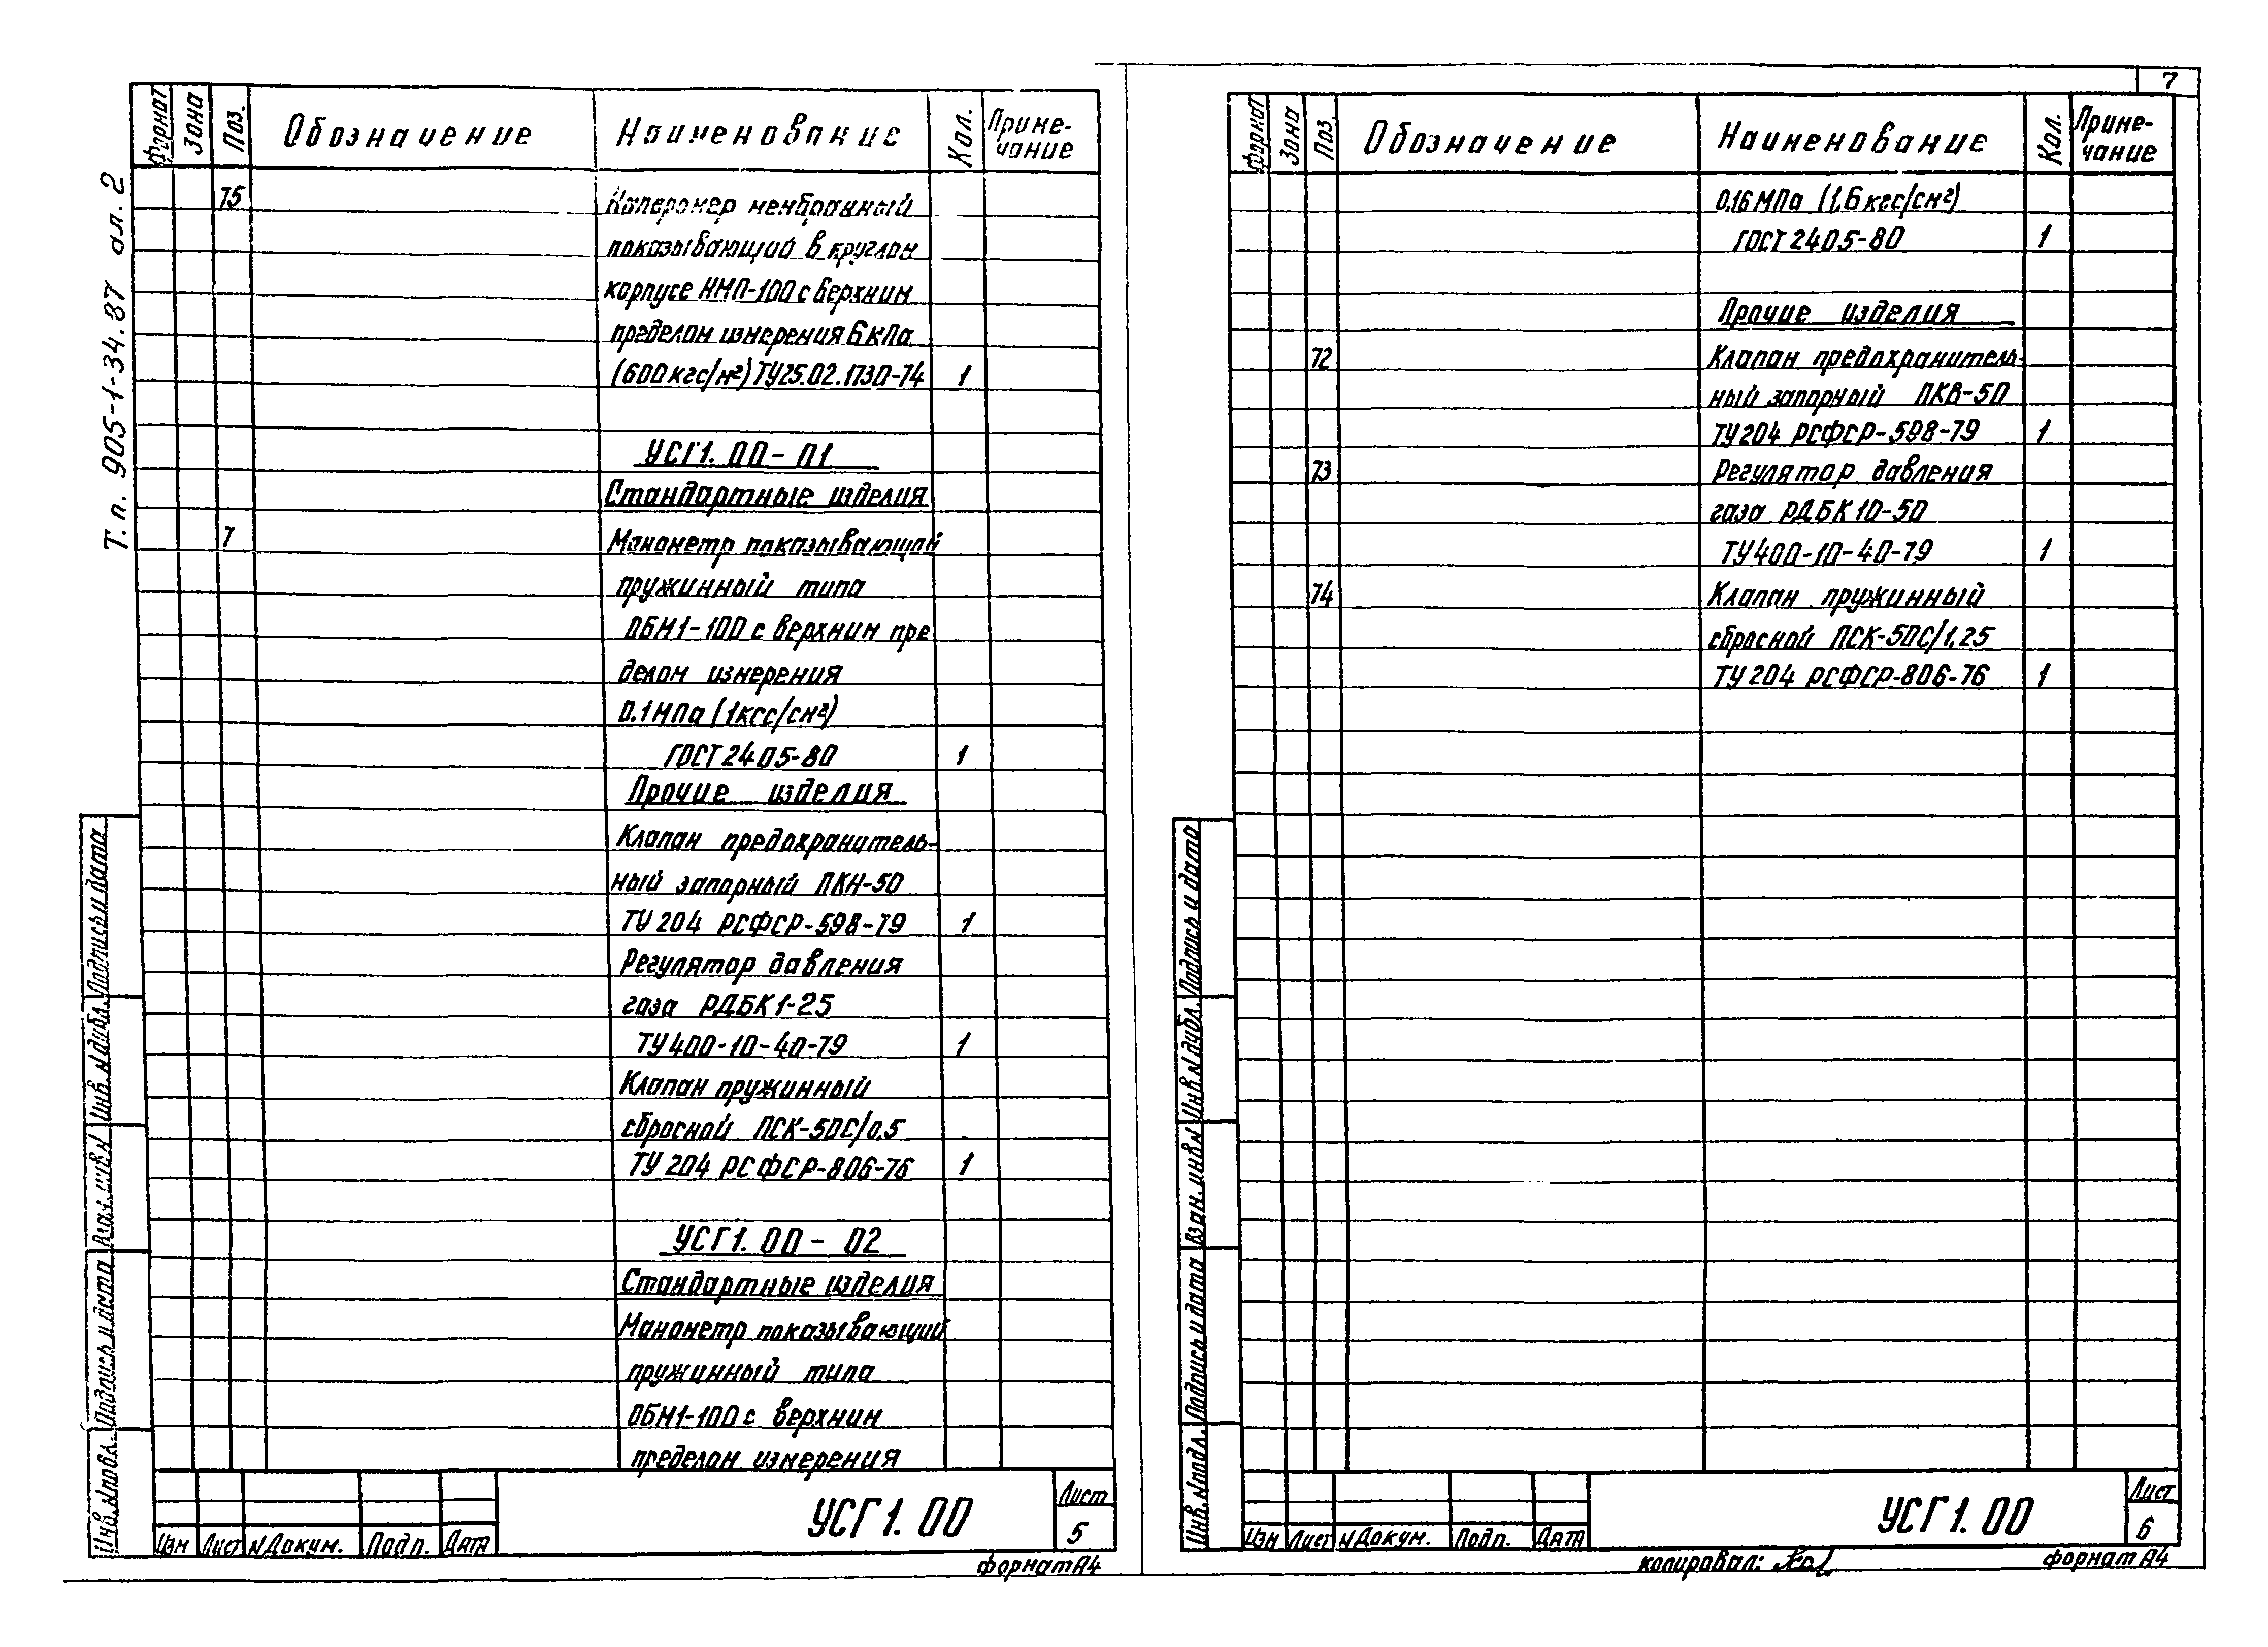 7
Т.п. 905-1-34.87 ал.2
Формат Зона Поз. Обозначение Наименование Кол. Приме-
чание
75 Напоромер мембранный
показывающий в круглом
корпусе НМП-100 с верхним
пределом измерения 6 кПа
(600 кгс/м²) ТУ25.02.1730-74 1
УСГ1.00-01
Стандартные изделия
7 Манометр показывающий
пружинный типа
ОБМ1-100 с верхним пре
делом измерения
0.1 МПа (1кгс/см²)
ГОСТ 2405-80 1
Прочие изделия
Клапан предохранитель-
ный запорный ПКН-50
ТУ 204 РСФСР-598-79 1
Регулятор давления
газа РДБК1-25
ТУ400-10-40-79 1
Клапан пружинный
сбросной ПСК-50С/0,5
ТУ 204 РСФСР-806-76 1
УСГ1.00-02
Стандартные изделия
Манометр показывающий
пружинный типа
ОБМ1-100 с верхним
пределом измерения
Подпись и дата
Инв.№дубл.
Взам.инв№
Подпись и дата
Инв.№подл.
Изм Лист №Докум. Подп. Дата
УСГ1.00
Лист
5
формат А4
Формат Зона Поз. Обозначение Наименование Кол. Приме-
чание
0,16 МПа (1,6 кгс/см²)
ГОСТ 2405-80 1
Прочие изделия
72 Клапан предохранитель-
ный запорный ПКВ-50
ТУ204 РСФСР-598-79 1
73 Регулятор давления
газа РДБК10-50
ТУ400-10-40-79 1
74 Клапан пружинный
сбросной ПСК-50С/1,25
ТУ 204 РСФСР-806-76 1
Подпись и дата
Инв№дубл.
Взам.инв№
Подпись и дата
Инв.№подл.
Изм Лист №Докум. Подп. Дата
УСГ1.00
Лист
6
копировал:
формат А4